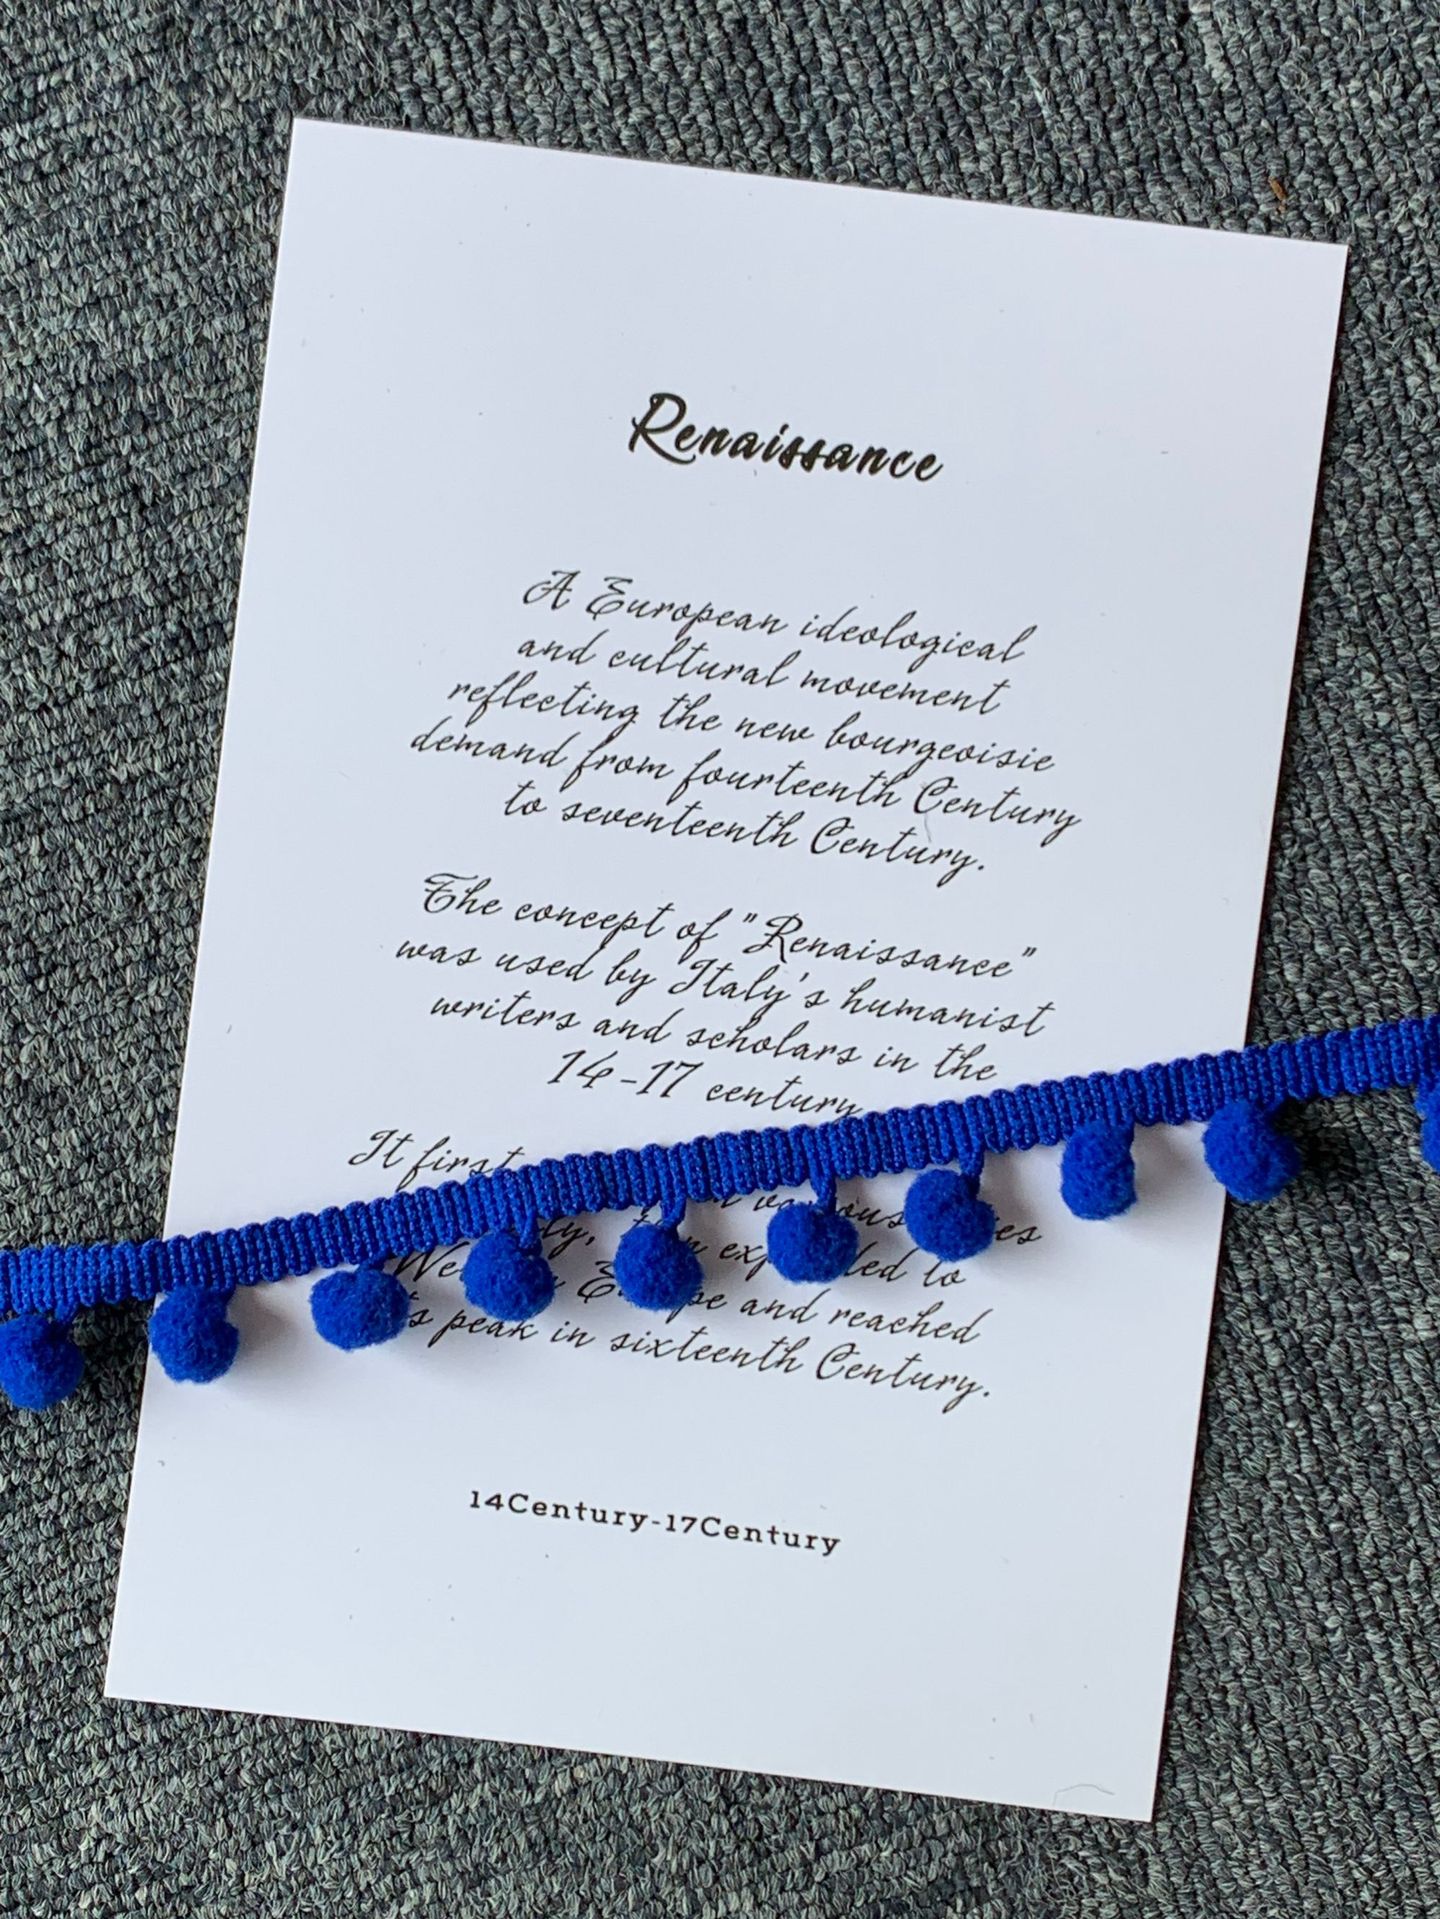 Renaissance
A European ideological
and cultural movement
reflecting the new bourgeoisie
demand from fourteenth Century
to seventeenth Century.
The concept of "Renaissance"
was used by Italy's humanist
writers and scholars in the
14-17 century
It first
to
and reached
peak in sixteenth Century.
14Century-17Century